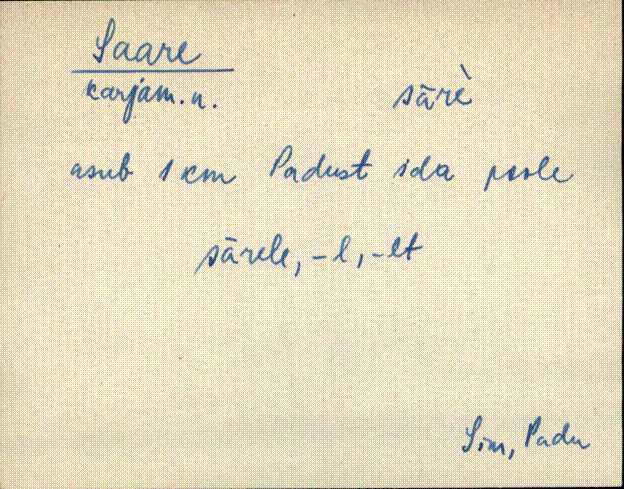 Saare
karjam. n. sārè
asub 1 km Padust ida poole
sārele, -l, -lt
Sim, Padu